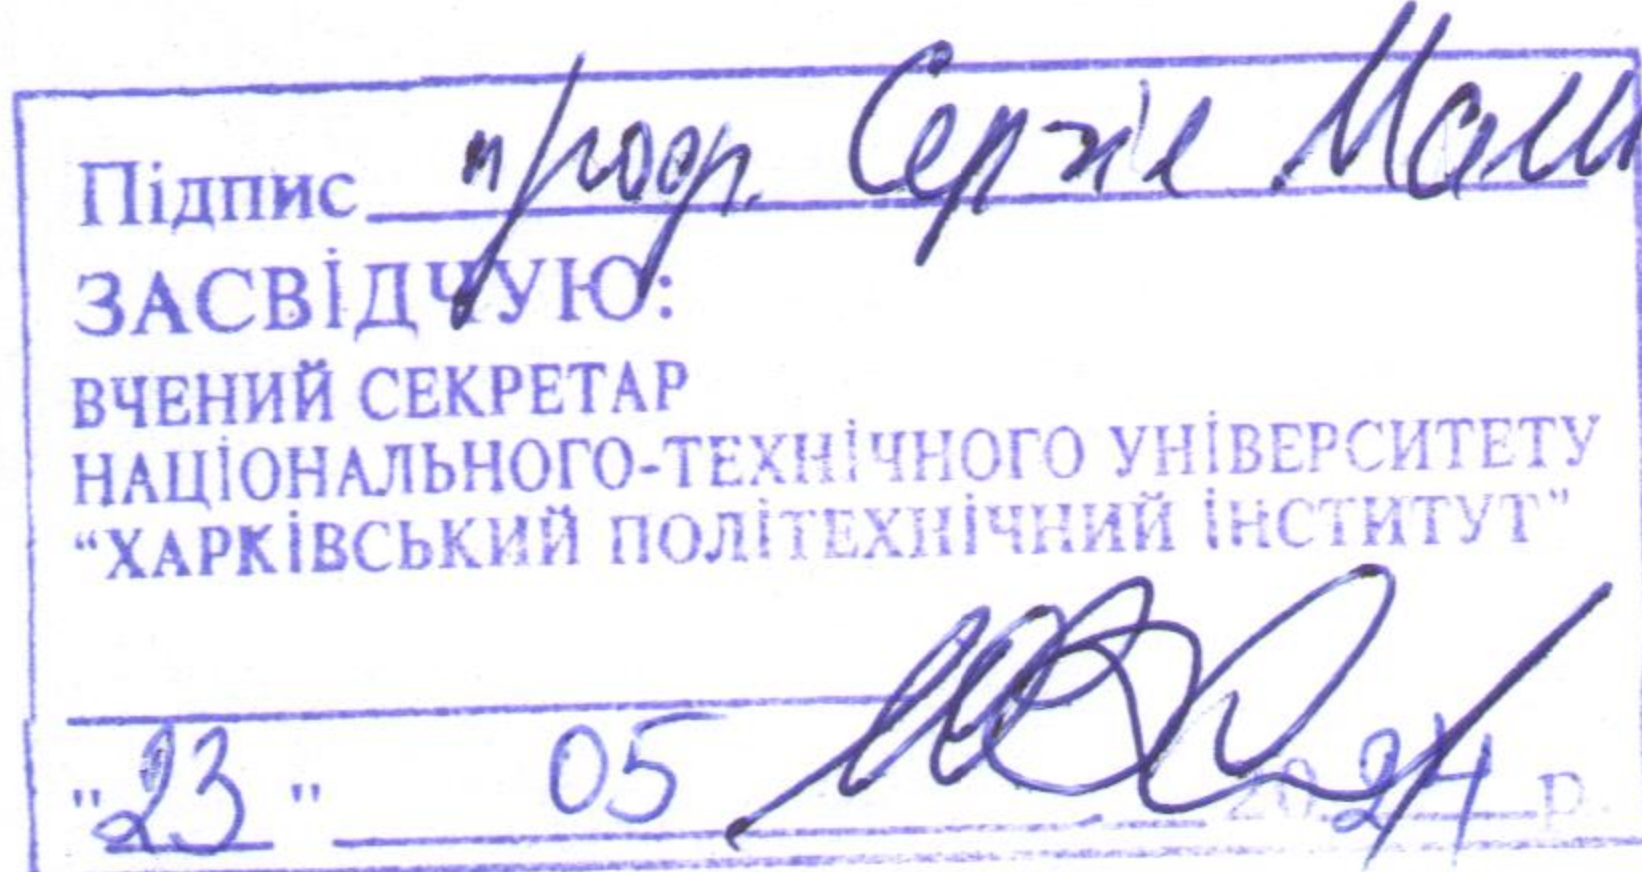 Підпис проф. Сергія
ЗАСВІДЧУЮ:
ВЧЕНИЙ СЕКРЕТАР
НАЦІОНАЛЬНОГО-ТЕХНІЧНОГО УНІВЕРСИТЕТУ
“ХАРКІВСЬКИЙ ПОЛІТЕХНІЧНИЙ ІНСТИТУТ”
"23" 05 2024 р.